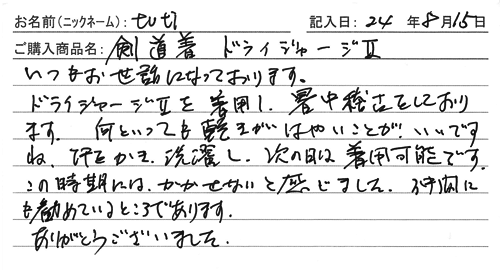 お名前(ニックネーム): tuti 記入日: 24 年 8 月 15 日
ご購入商品名: 剣道着 ドライジャージⅡ
いつもお世話になっております。
ドライジャージⅡを着用し、暑中稽古をしており
ます。何といっても乾きがはやいことがいいです
ね、汗をかき、洗濯し、次の日は着用可能です。
この時期には、かかせないと感じました。仲間に
も勧めているところであります。
ありがとうございました。